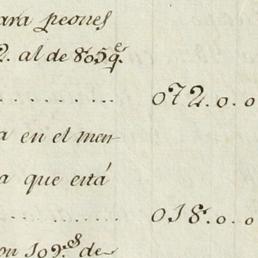 ara peones
2. al de 8o5q.e
. . . . . . . . . . . . 072.0.0
a en el mon-
a que está
. . . . . . . . . . . . 018.0.0
on 109.s de